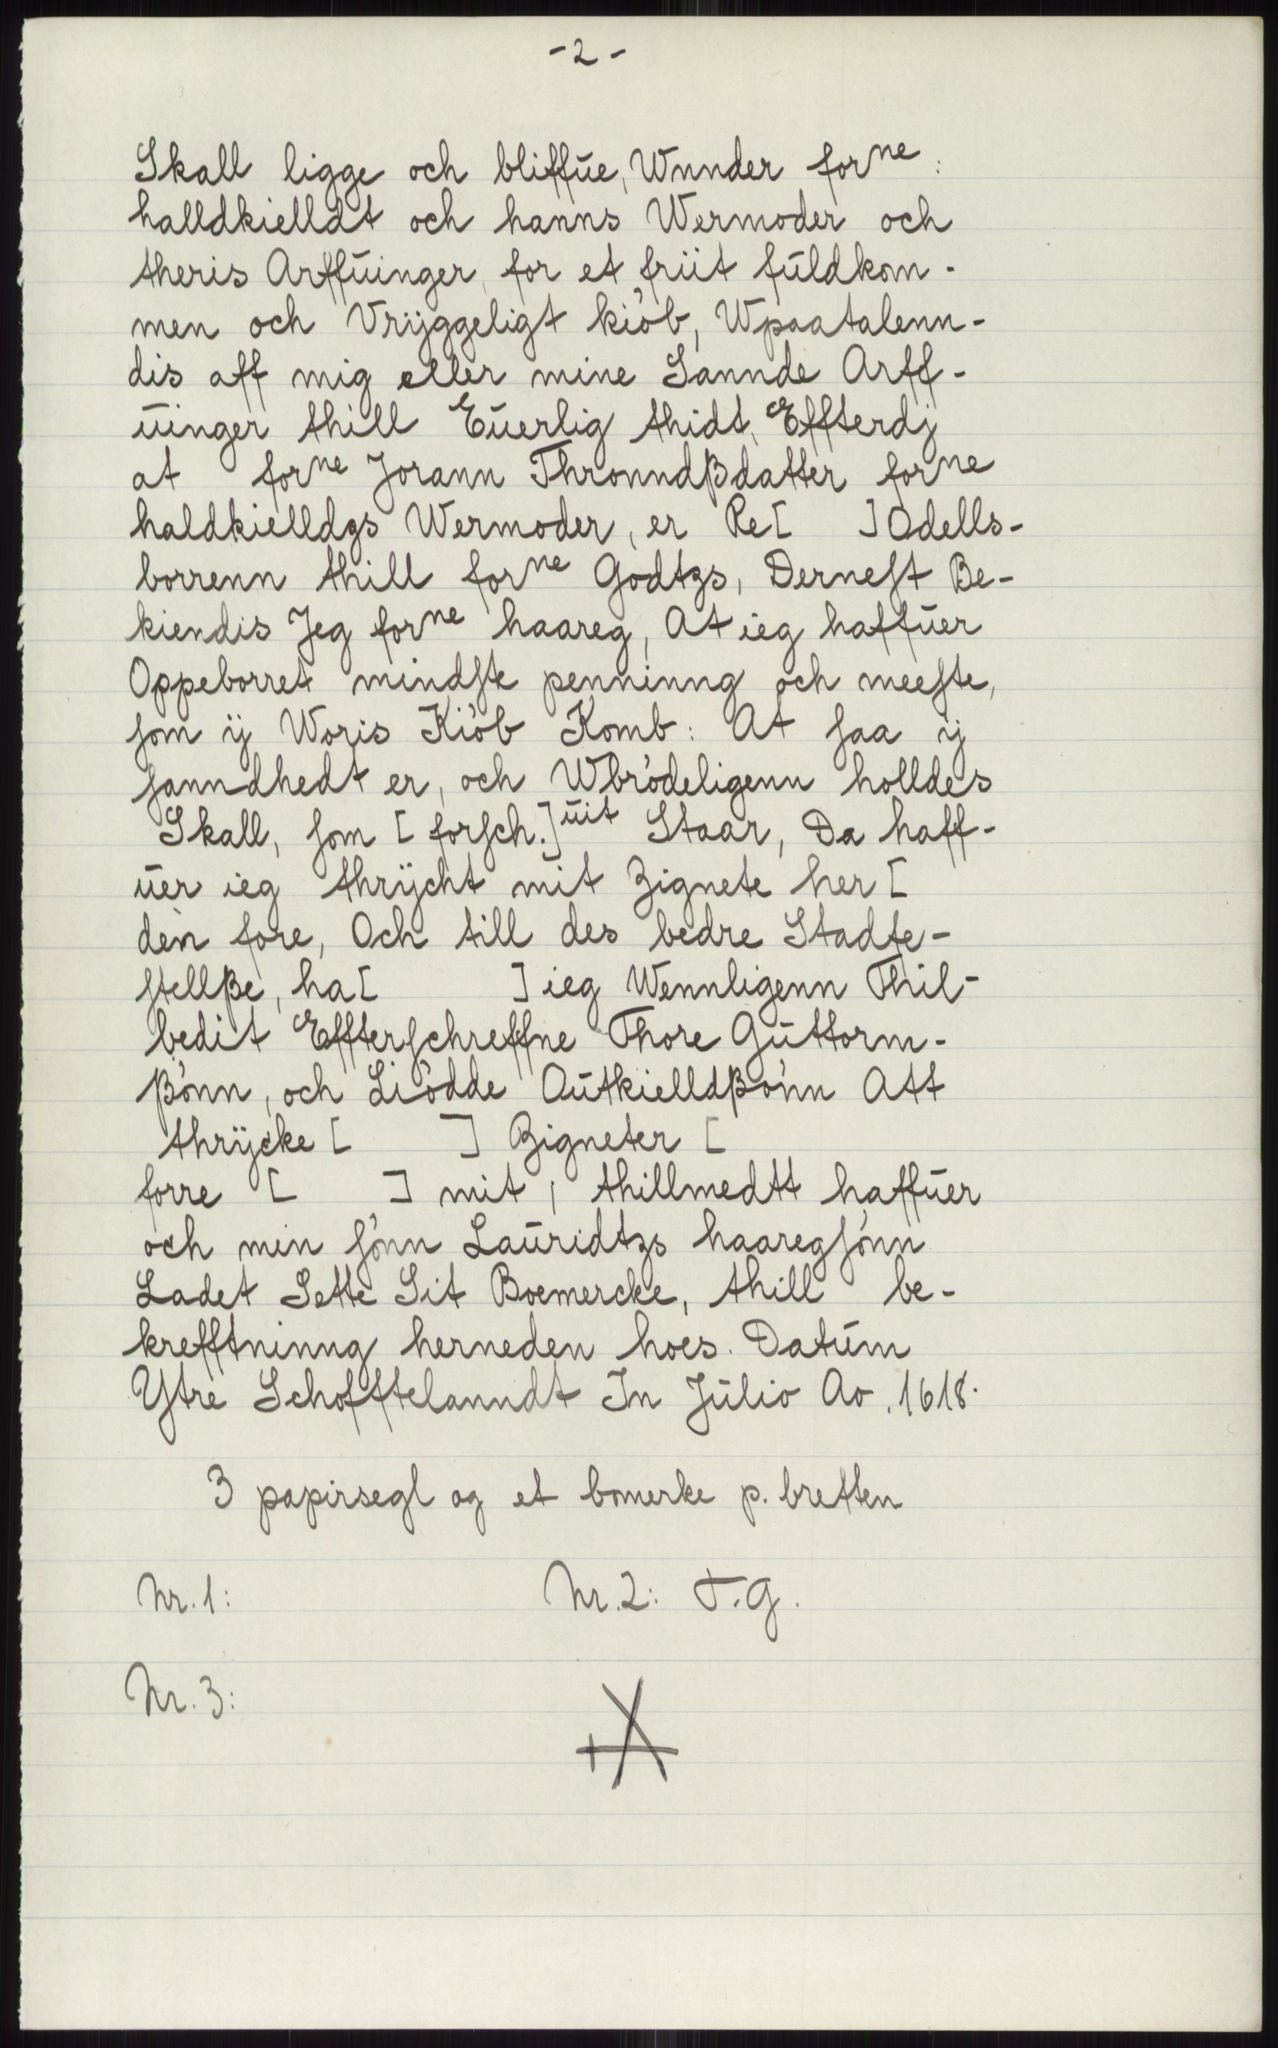 - 2 -
Skall ligge och bliffue, Wnnder forne:
halldkielldt och hanns Wermoder och
theris Arffuinger, for et friit fuldkom-
men och Vryggeligt kiöb, Wpaatalenn-
dis aff mig eller mine Sannde Arff-
uinger thill Euerlig thidt, Effterdj
at forne Jorann Thronndßdatter forne
haldkielldzs Wermoder, er Re[ ] Odells-
borrenn thill forne Godtzs, Dernest Be-
kiendis Jeg forne haareg, At ieg haffuer
Oppeborret mindste penninng och meeste,
som ij Woris Kiöb Komb: At saa ij
sanndhedt er, och Wbrödeligenn holldes
Skall, som [forsch.]uit Staar, Da haff-
uer ieg thrÿcht mit Zignete her [
den fore, Och till des bedre Stadfe-
stellße, ha[ ] ieg Wennligenn Thil-
bedit Effterschreffne Thore Guttorm-
ßönn, och Liödde Outkielldßönn Att
thrÿcke [ ] Zigneter [
forre [ ] mit, thillmedtt haffuer
och min sönn Lauridtzs haaregsönn
Ladet Sette Sit Boemercke, thill be-
krefftninng herneden hoes. Datum
Ytre Schofftelanndt In Julio Ao. 1618.
3 papirsegl og et bomerke p. bretten
Nr. 1: Nr. 2: T. G.
Nr. 3: